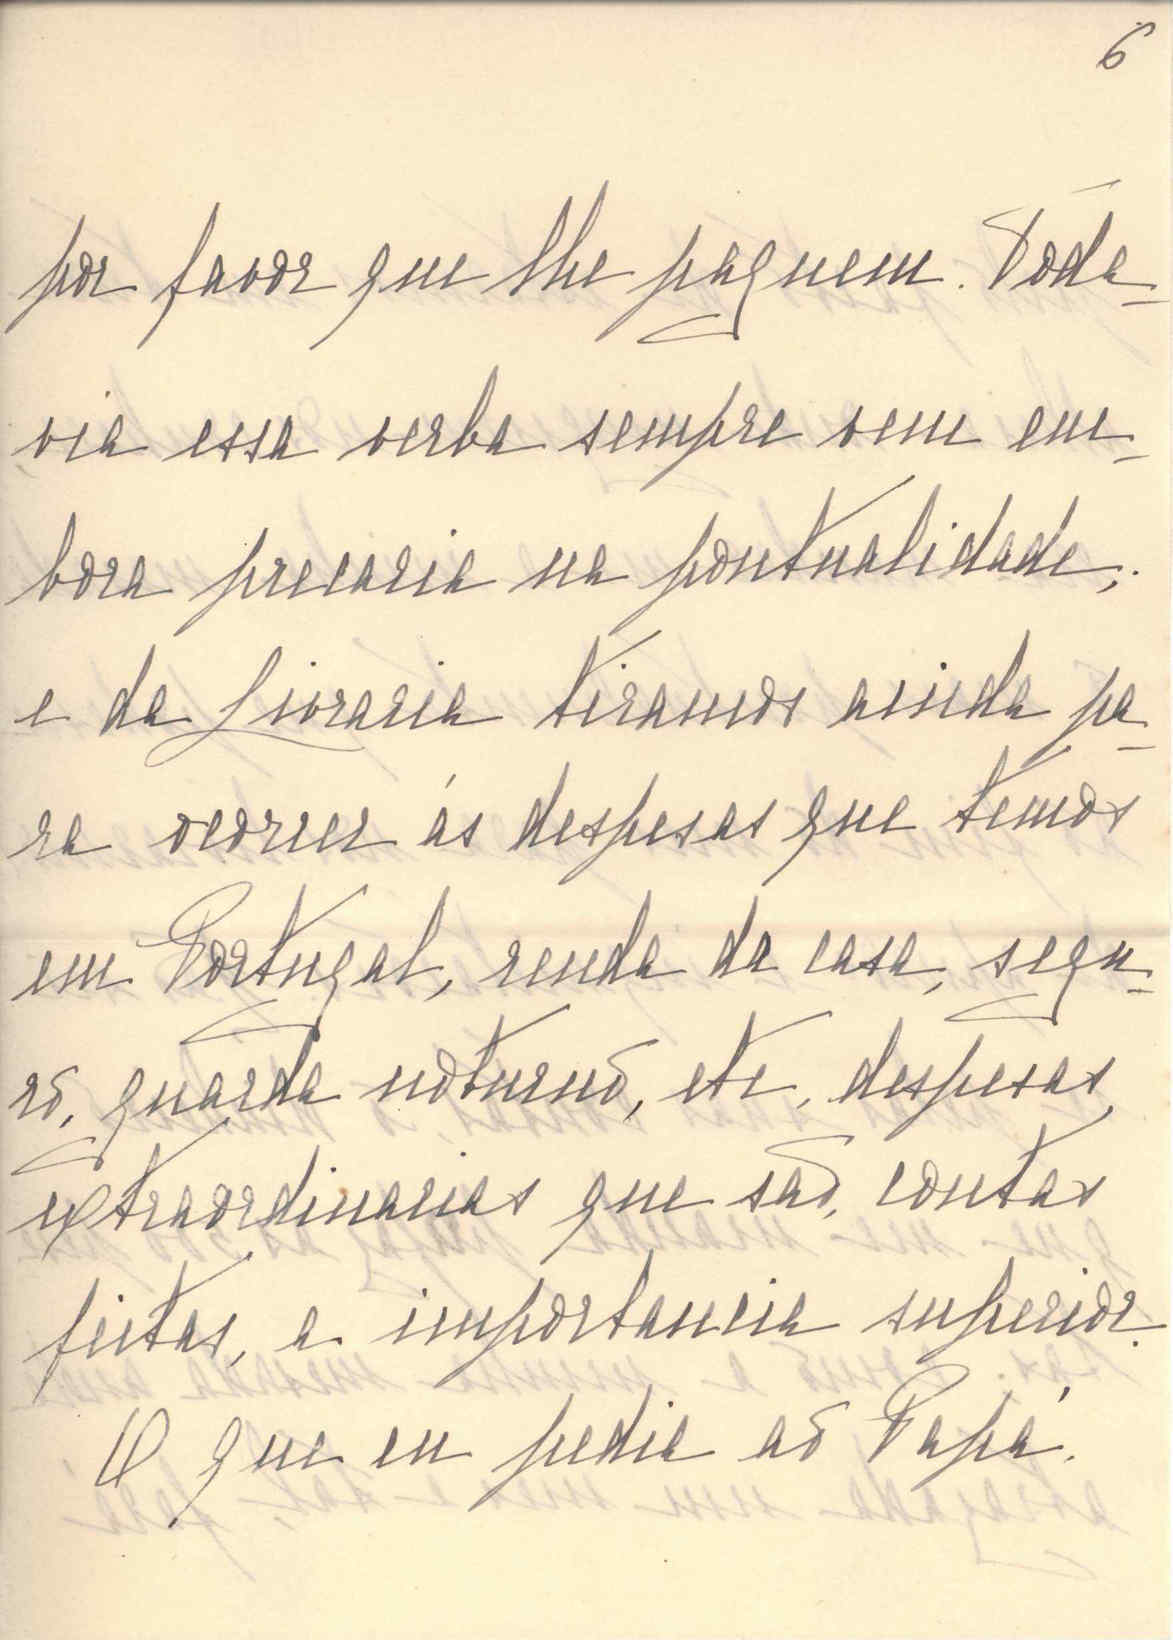 6
por favor que lhe paguem. Toda-
via essa verba sempre vem em-
bora precaria na pontualidade;
e da Livraria tiramos ainda pa-
ra ocorrer ás despesas que temos
em Portugal, renda da casa, segu-
ro, guarda noturno, etc, despesas
extraordinarias que são, contas
feitas, a importancia superior.
O que eu pedia ao Papá.